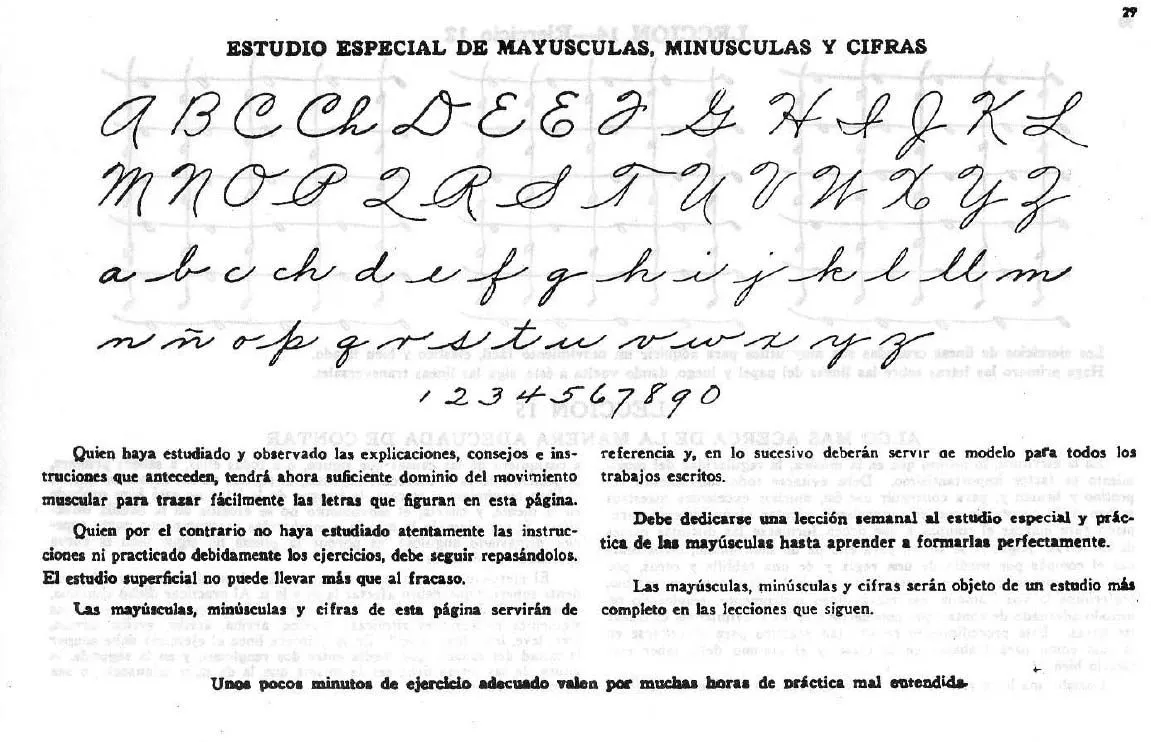 29
ESTUDIO ESPECIAL DE MAYUSCULAS, MINUSCULAS Y CIFRAS
A B C Ch D E E F G H I J K L
M N O P Q R S T U V W X Y Z
a b c ch d e f g h i j k l ll m
n ñ o p q r s t u v w x y z
1 2 3 4 5 6 7 8 9 0
Quien haya estudiado y observado las explicaciones, consejos e ins-
trucciones que anteceden, tendrá ahora suficiente dominio del movimiento
muscular para trazar fácilmente las letras que figuran en esta página.
Quien por el contrario no haya estudiado atentamente las instruc-
ciones ni practicado debidamente los ejercicios, debe seguir repasándolos.
El estudio superficial no puede llevar más que al fracaso.
Las mayúsculas, minúsculas y cifras de esta página servirán de
referencia y, en lo sucesivo deberán servir de modelo para todos los
trabajos escritos.
Debe dedicarse una lección semanal al estudio especial y prác-
tica de las mayúsculas hasta aprender a formarlas perfectamente.
Las mayúsculas, minúsculas y cifras serán objeto de un estudio más
completo en las lecciones que siguen.
Unos pocos minutos de ejercicio adecuado valen por muchas horas de práctica mal entendida.